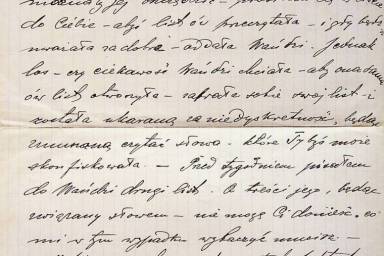 do Ciebie – abyś list ów przeczytała – i gdy będziesz
uważała za dobre – oddała Wańdzi. Jednak
los – czy ciekawość Wańdzi chciała – aby ona sama
ów list otworzyła – zabrała sobie swój list – i
została ukaraną za niedyskretność, będąc
zmuszoną czytać słowa – które Tyżby może
skonfiskowała. – Przed tygodniem pisałem
do Wańdzi drugi list. O treści jego, będąc
związany słowem – nie mogę Ci donieść. co
mi w tym wypadku wybaczyć musisz –